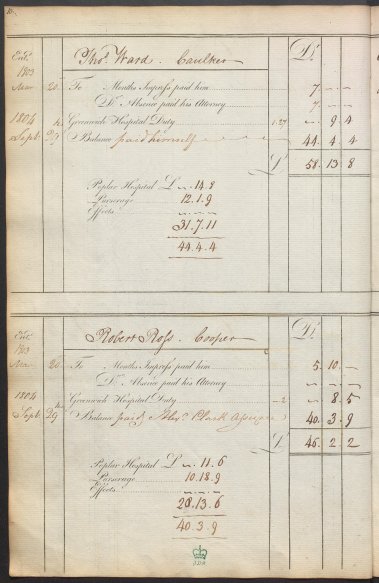 Thoˢ Ward . Caulker Dʳ
Entᵈ
1803
Mar 20 To Months Imprest paid him 7 - -
Dº Absence paid his Attorney 7 - -
1804 Greenwich Hospital Duty 1.27 " 9 4
Sept. 29 Balance paid himself 44 . 4 . 4
£ 58 . 13 . 8
Poplar Hospital £ " . 14 . 8
Purserage 12 . 1 . 9
Effects
31 . 7 . 11
44 . 4 . 4
Robert Ross . Cooper Dʳ
Entᵈ
1803
Mar 20 To Months Imprest paid him 5 . 10 -
Dº Absence paid his Attorney
1804 Greenwich Hospital Duty " 8 5
Sept. 29 Balance paid Alexʳ Clark 40 . 3 . 9
£ 46 . 2 . 2
Poplar Hospital £ " . 11 . 6
Purserage 10 . 18 . 9
Effects
28 . 13 . 6
40 . 3 . 9